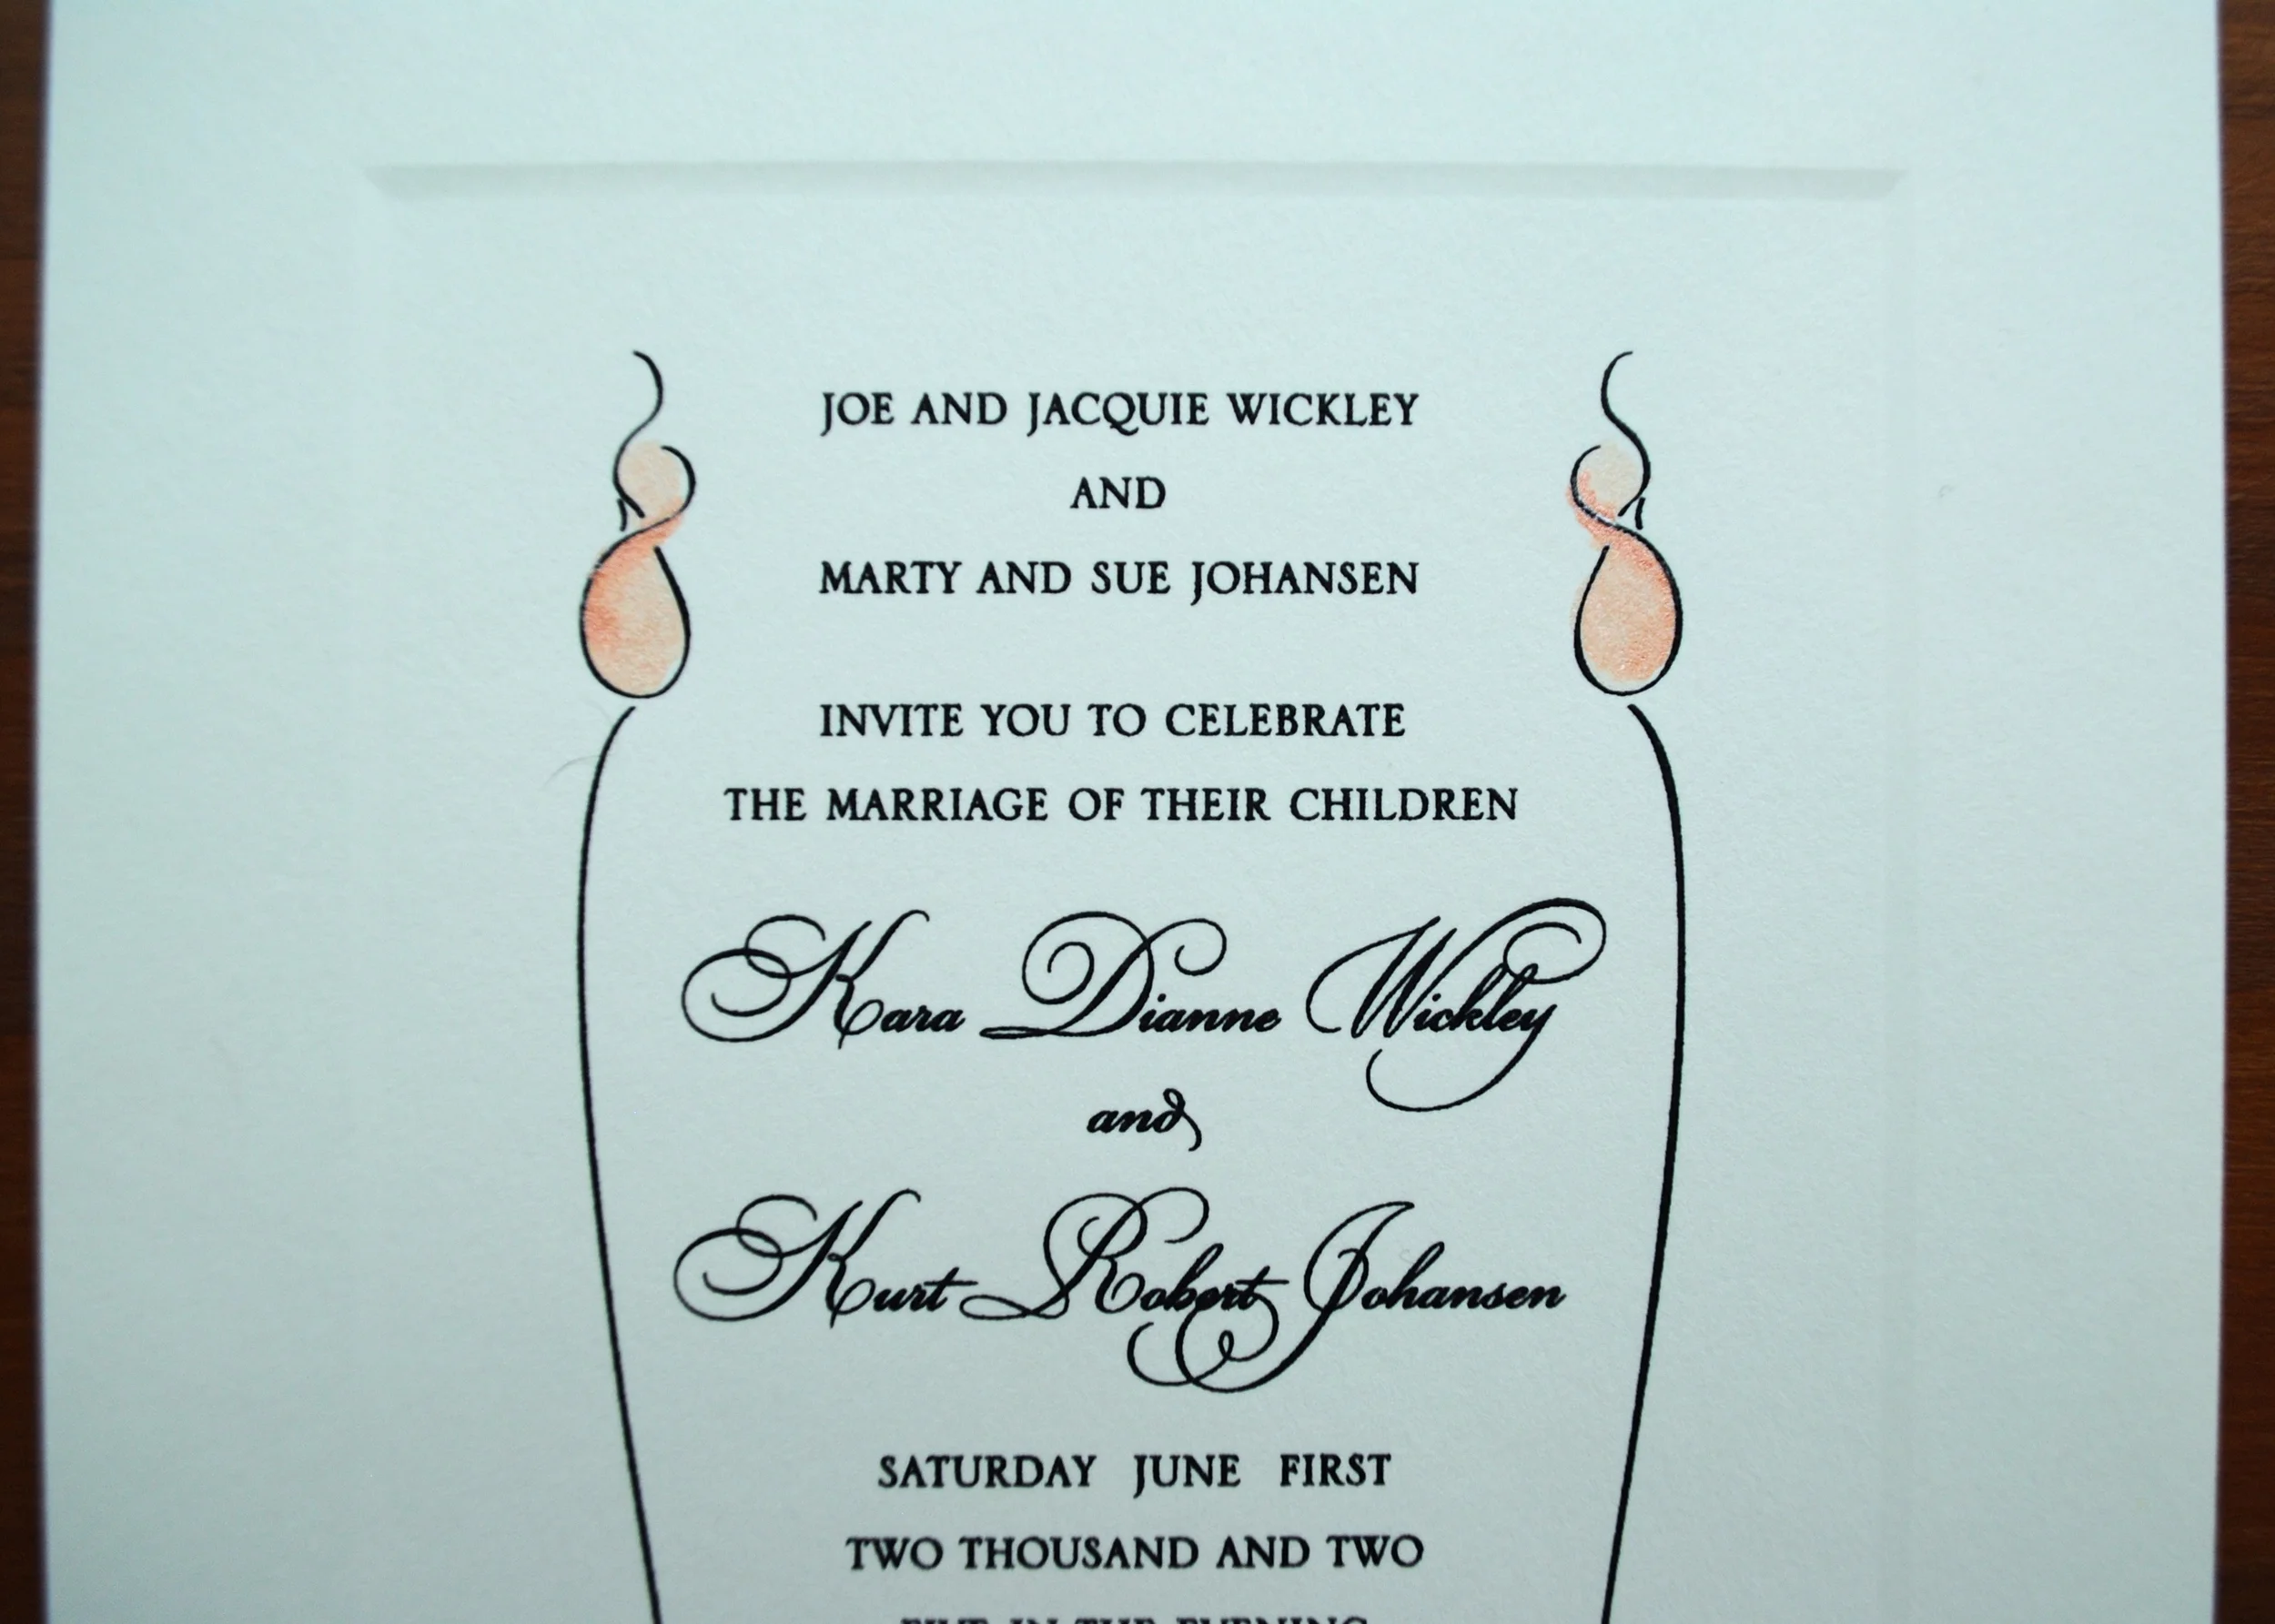 JOE AND JACQUIE WICKLEY
AND
MARTY AND SUE JOHANSEN
INVITE YOU TO CELEBRATE
THE MARRIAGE OF THEIR CHILDREN
Kara Dianne Wickley
and
Kurt Robert Johansen
SATURDAY JUNE FIRST
TWO THOUSAND AND TWO
FIVE IN THE EVENING